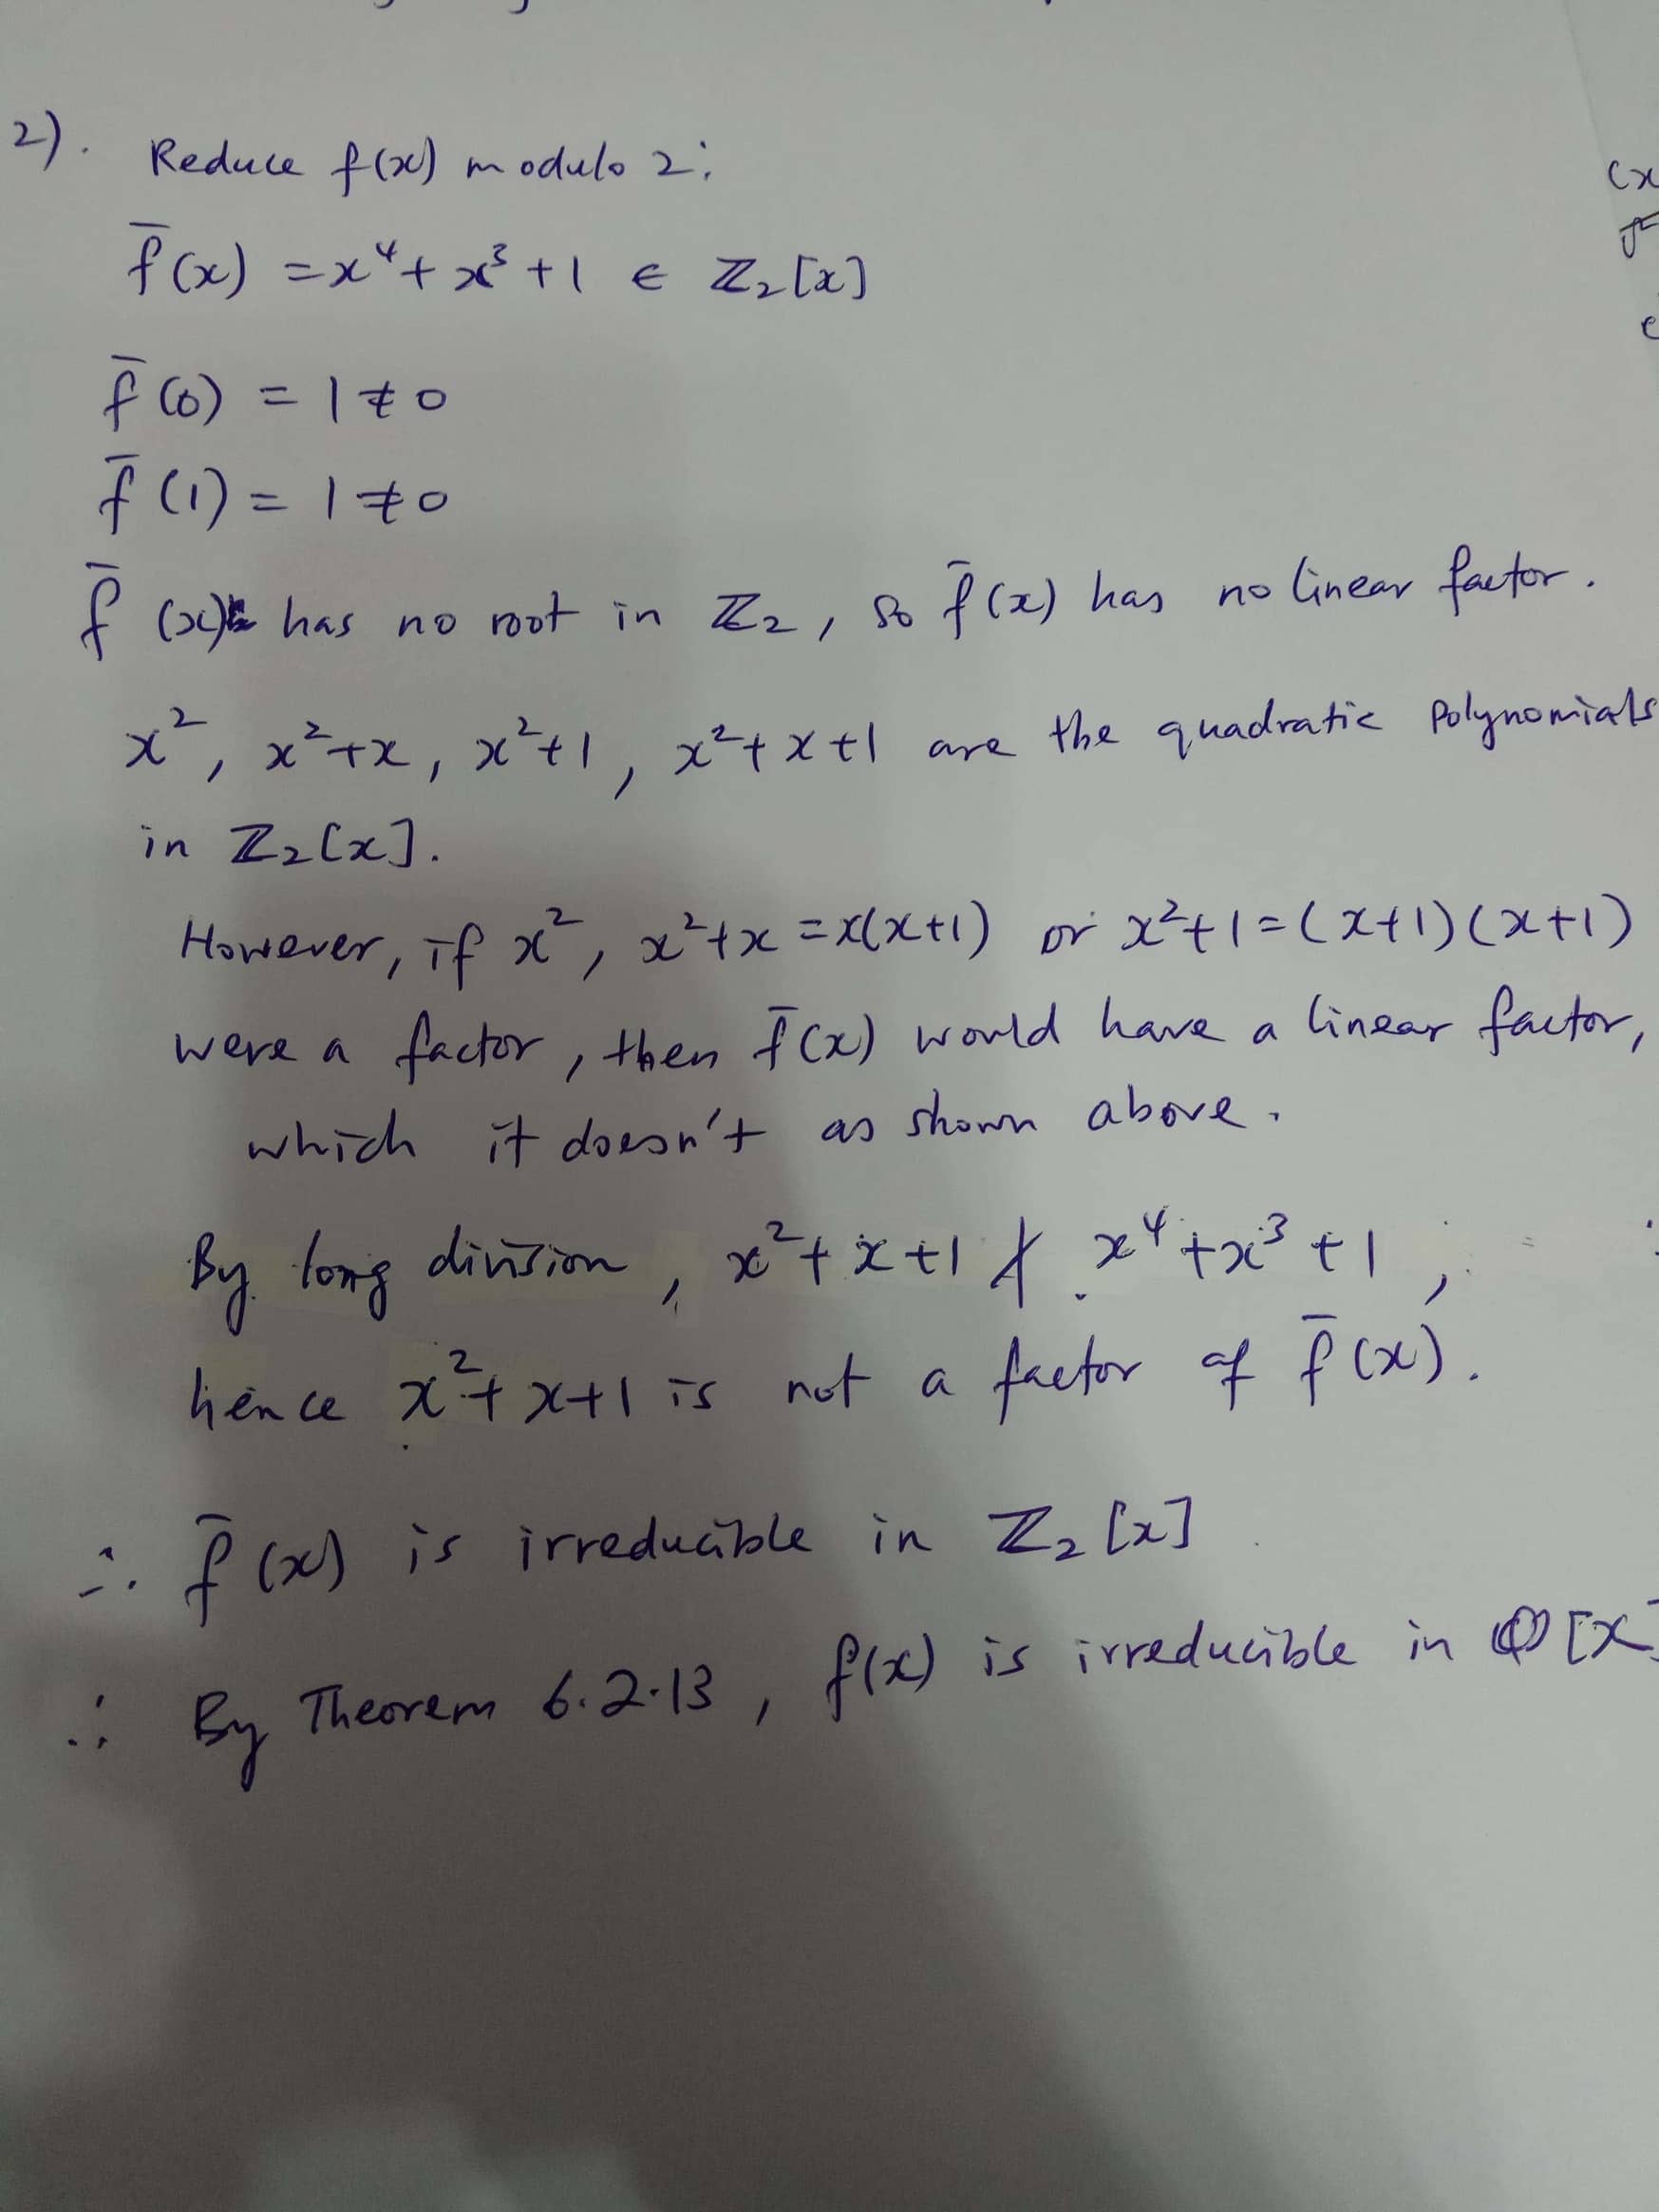 2). Reduce f(x) modulo 2:
f̄(x) = x⁴ + x³ + 1 ∈ ℤ₂[x]
f̄(0) = 1 ≠ 0
f̄(1) = 1 ≠ 0
f̄(x) has no root in ℤ₂, so f̄(x) has no linear factor.
x², x²+x, x²+1, x²+x+1 are the quadratic polynomials
in ℤ₂[x].
However, if x², x²+x = x(x+1) or x²+1 = (x+1)(x+1)
were a factor, then f̄(x) would have a linear factor,
which it doesn't as shown above.
By long division, x²+x+1 ∤ x⁴+x³+1,
hence x²+x+1 is not a factor of f̄(x).
∴ f̄(x) is irreducible in ℤ₂[x]
∴ By Theorem 6.2.13, f(x) is irreducible in ℚ[x]